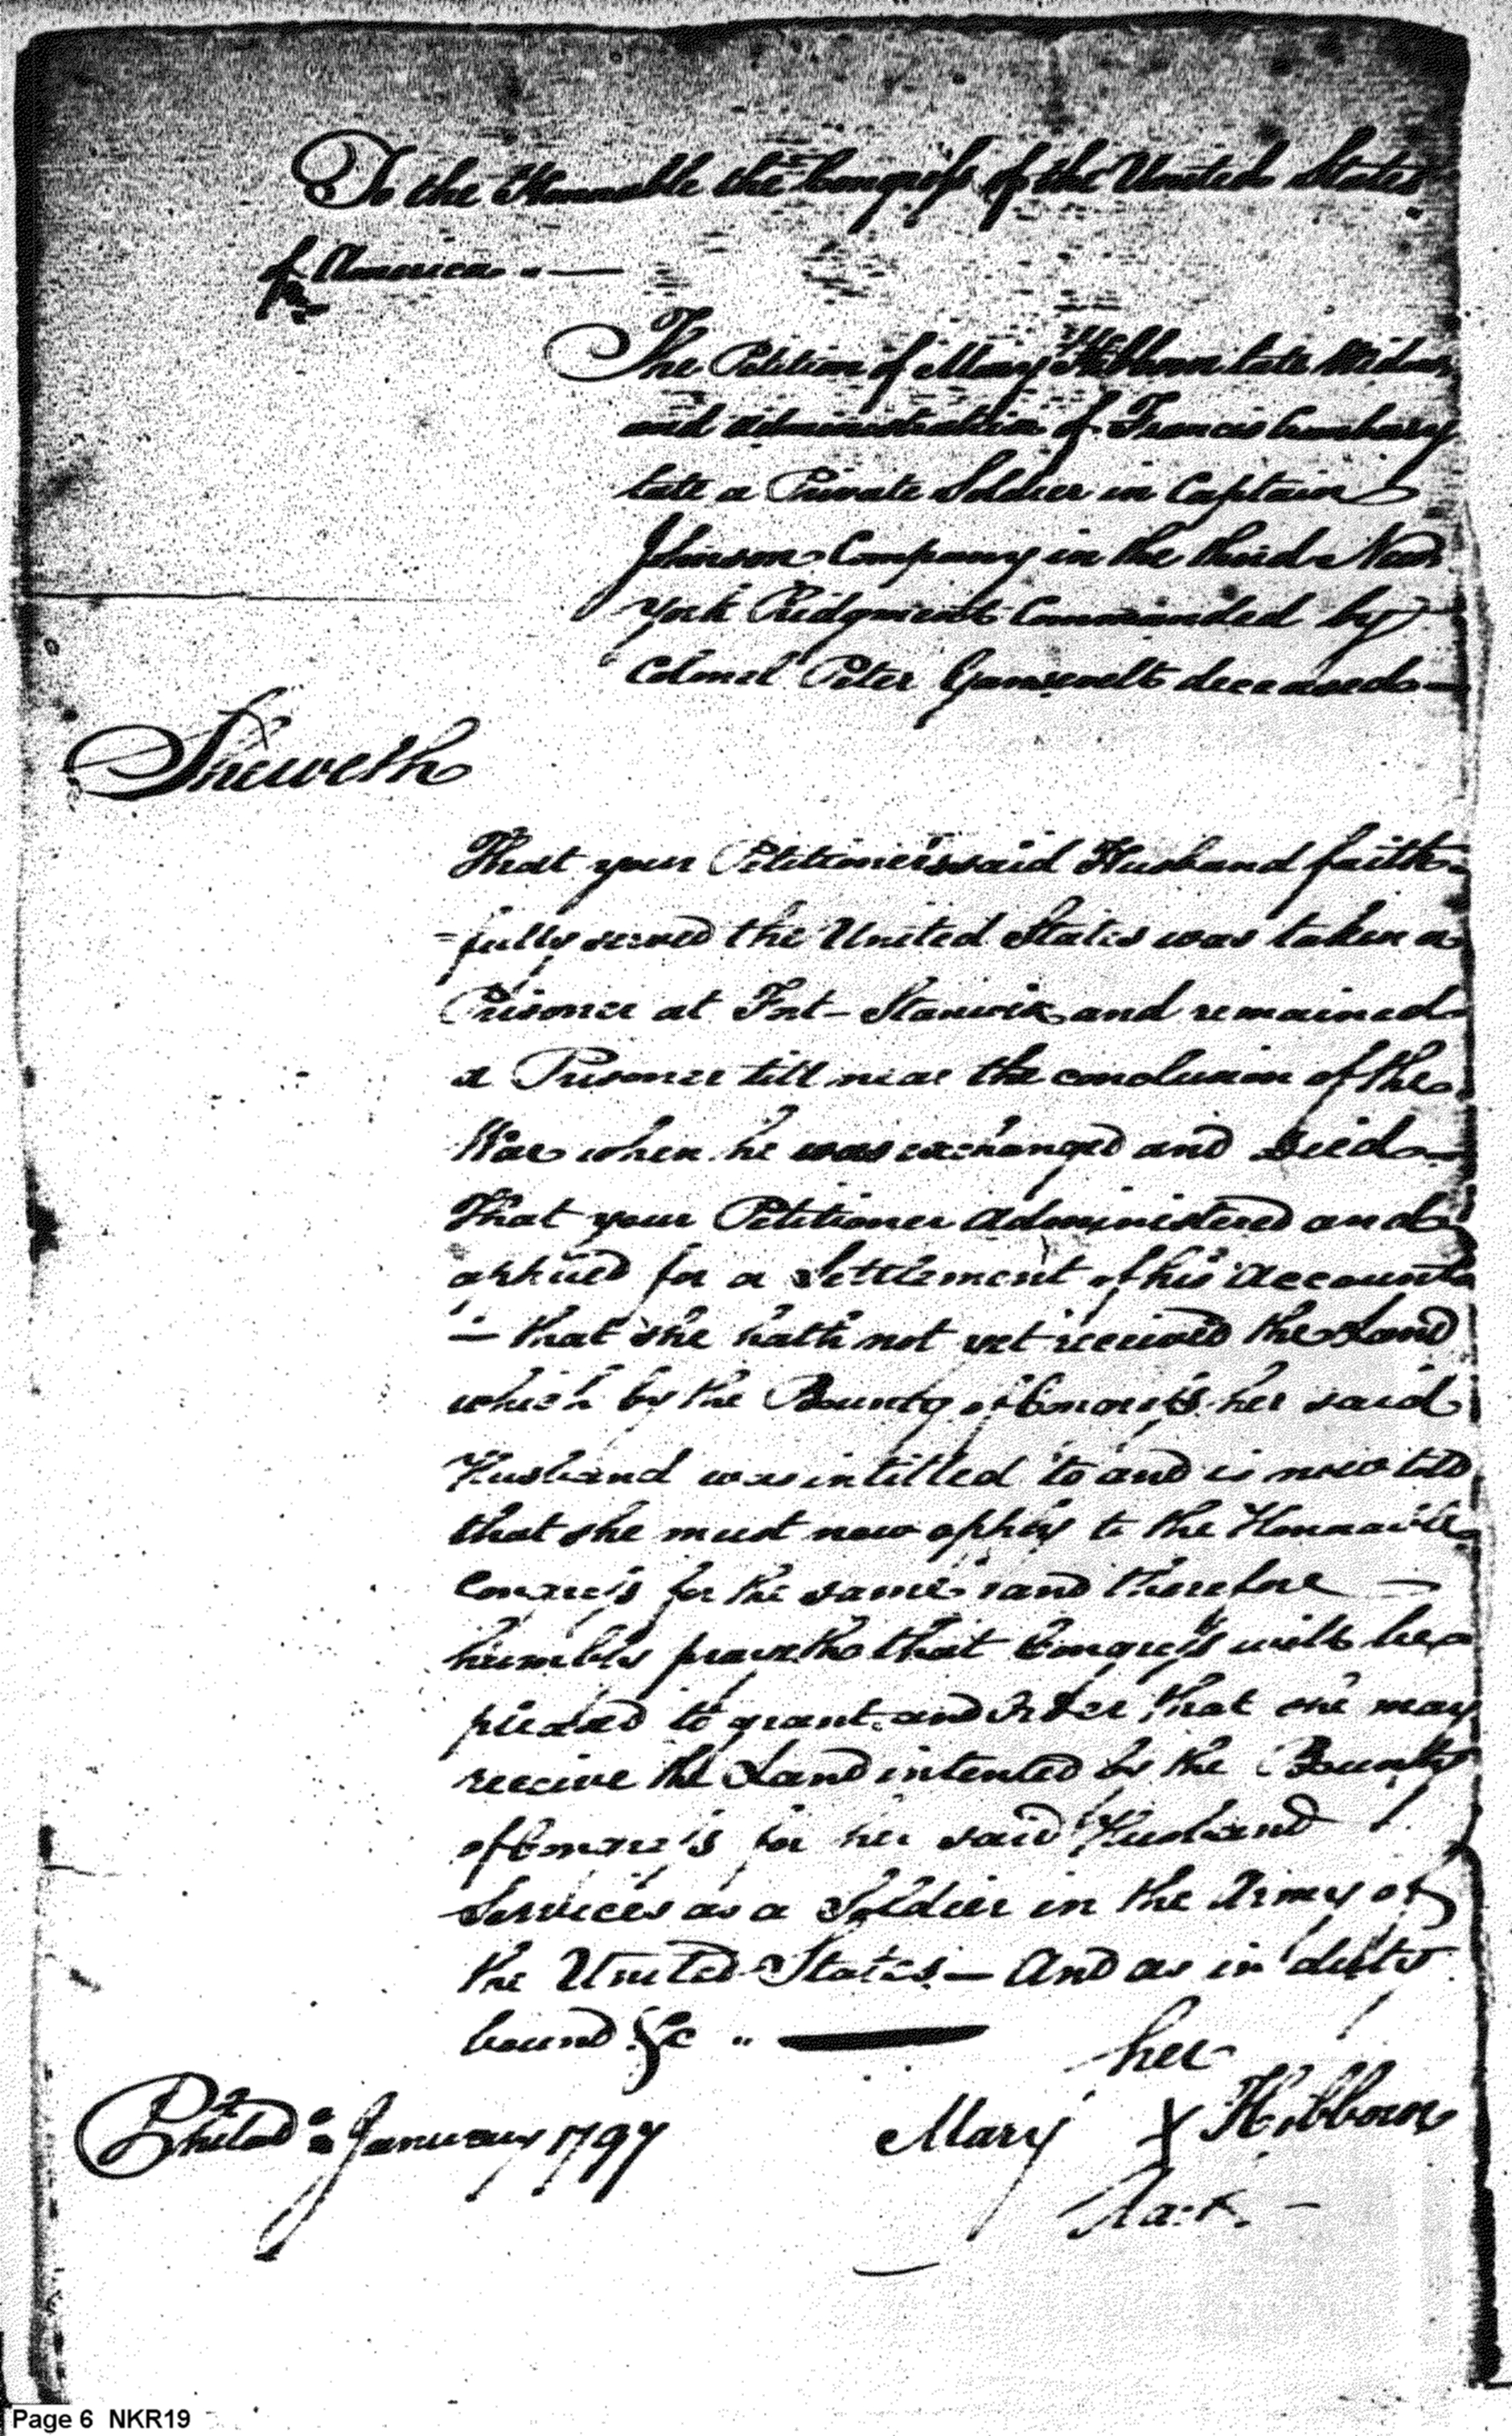 To the Honnable the Congress of the United States
of America. —
The Petition of Mary Hibborn late Widow
and Administratrix of Francis
late a Private Soldier in Captain
Johnson Company in the third New
York Ridgment Commanded by
Colonel Peter Gansevelt deceased —
Sheweth
That your Petitioner's said Husband faith-
=fully served the United States was taken a
Prisoner at Fort-Stanwix and remained
a Prisoner till near the conclusion of the
War when he was exchanged and Died —
That your Petitioner Administered and
applied for a Settlement of his Accounts
— that she hath not yet received the Land
which by the Bounty of Congress her said
Husband was intitled to and is now told
that she must now apply to the Honnable
Congress for the same and therefore —
humbly prayeth that Congress will be
pleased to grant and Order that she may
receive the Land intented by the Bounty
of Congress for her said Husband
Services as a Soldier in the Army of
the United States — And as in duty
bound &c " —
her
Mary X Hibborn
Mark —
Philad.a January 1797
Page 6 NKR19